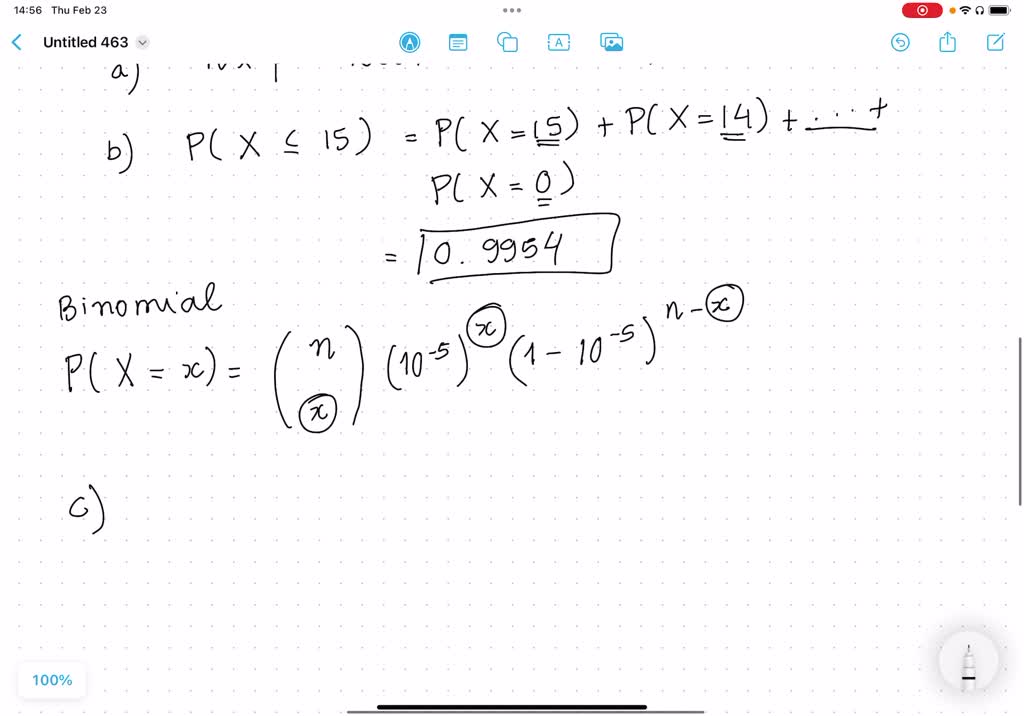 14:56 Thu Feb 23
Untitled 463
a)
b) P( X ≤ 15 ) = P( X = 15 ) + P( X = 14 ) + ... +
P( X = 0 )
= 0.9954
Binomial
P( X = x ) = ( n x ) (10^-5)^x (1 - 10^-5)^n-x
c)
100%